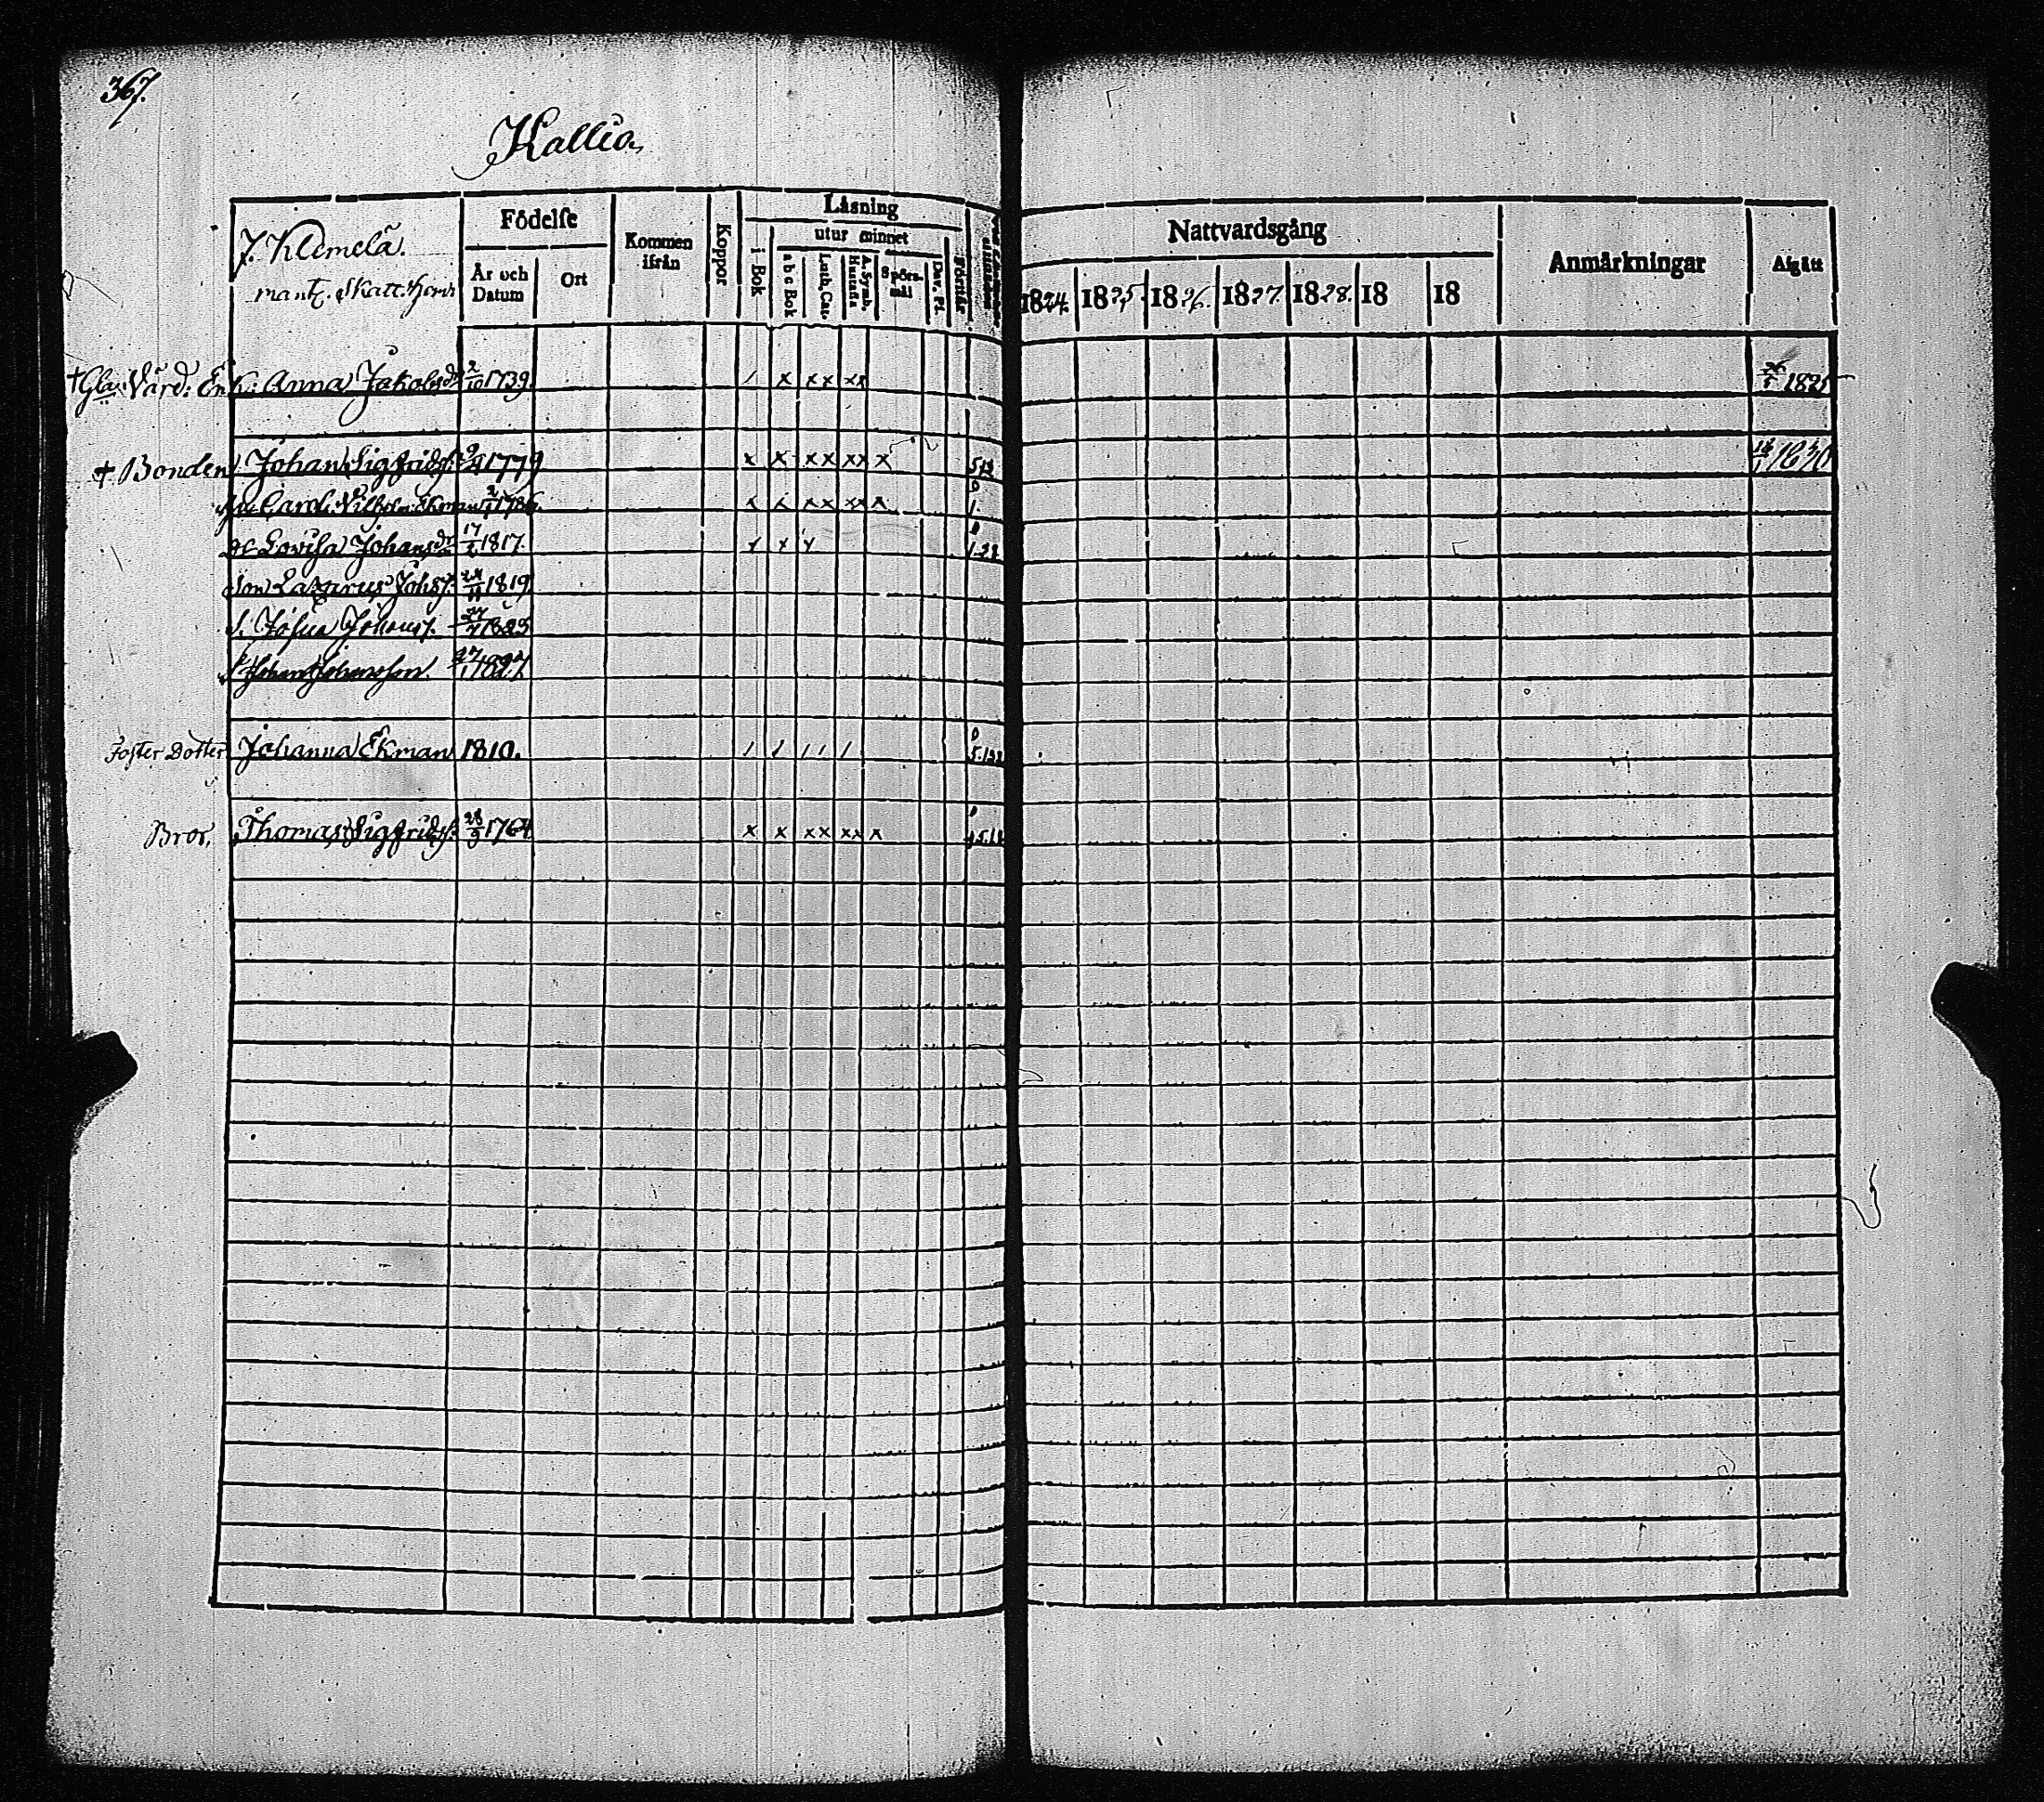 367.
Kallio,
7. Klemelä.
mantz. Skatt. hem
Födelse
År och Datum
Ort
Kommen ifrån
Koppor
Läsning
i Bok
utur minnet
a b c Bok
Luth. Cat.
A. Symb. Hustafla
Spörs-mål
Dav. Ps.
Förstår
Nattvardsgång
1824.
1825.
1826.
1827.
1828.
18
18
Anmärkningar
Afgått
† Gla: Värd: Enk: Anna Jakobsdr 2/10 1739. / x xx xx 1825
† Bonden Johan Sigfrids. 1779 x x xx xx x 1830
Carol. Vilhelm. Ekman 1786. x x xx xx x
Lovisa Johansdr 17/2 1817. x x x
Son Lazarus Johs. 1819
S. Josua Johans. 27/7 1823
S Johan Johansson. 27/1 1827
Foster Dotter Johanna Ekman 1810. / / / / /
Bror, Thomas Sigfrids. 28/9 1764 x x xx xx x